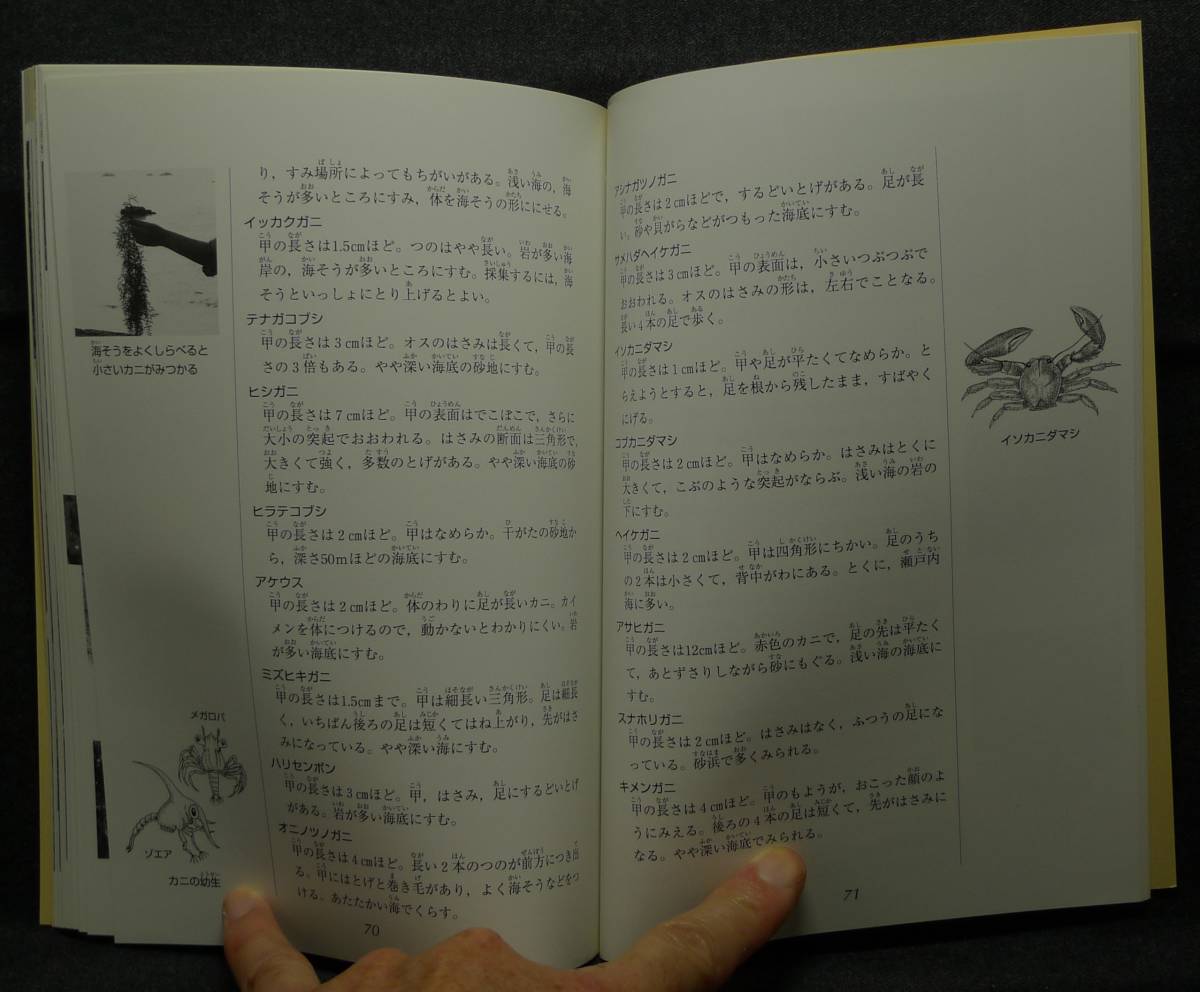 り，すみ場所によってもちがいがある。浅い海の，海
そうが多いところにすみ，体を海そうの形ににせる。
イッカクガニ
甲の長さは1.5cmほど。つのはやや長い。岩が多い海
岸の，海そうが多いところにすむ。採集するには，海
そうといっしょにとり上げるとよい。
テナガコブシ
甲の長さは3cmほど。オスのはさみは長くて，甲の長
さの3倍もある。やや深い海底の砂地にすむ。
ヒシガニ
甲の長さは7cmほど。甲の表面はでこぼこで，さらに
大小の突起でおおわれる。はさみの断面は三角形で，
大きくて強く，多数のとげがある。やや深い海底の砂
地にすむ。
ヒラテコブシ
甲の長さは2cmほど。甲はなめらか。干がたの砂地か
ら，深さ50mほどの海底にすむ。
アケウス
甲の長さは2cmほど。体のわりに足が長いカニ。カイ
メンを体につけるので，動かないとわかりにくい。岩
が多い海底にすむ。
ミズヒキガニ
甲の長さは1.5cmまで。甲は細長い三角形。足は細長
く，いちばん後ろの足は短くてはね上がり，先がはさ
みになっている。やや深い海にすむ。
ハリセンボン
甲の長さは3cmほど。甲，はさみ，足にするどいとげ
がある。岩が多い海底にすむ。
オニノツノガニ
甲の長さは4cmほど。長い2本のつのが前方につき出
る。甲にはとげと巻き毛があり，よく海そうなどをつ
ける。あたたかい海でくらす。
海そうをよくしらべると
小さいカニがみつかる
メガロパ
ゾエア
カニの幼生
70
アシナガツノガニ
甲の長さは2cmほどで，するどいとげがある。足が長
い。砂や貝がらなどがつもった海底にすむ。
サメハダヘイケガニ
甲の長さは3cmほど。甲の表面は，小さいつぶつぶで
おおわれる。オスのはさみの形は，左右でことなる。
長い4本の足で歩く。
イソカニダマシ
甲の長さは1cmほど。甲や足が平たくてなめらか。と
らえようとすると，足を根から残したまま，すばやく
にげる。
コブカニダマシ
甲の長さは2cmほど。甲はなめらか。はさみはとくに
大きくて，こぶのような突起がならぶ。浅い海の岩の
下にすむ。
ヘイケガニ
甲の長さは2cmほど。甲は四角形にちかい。足のうち
の2本は小さくて，背中がわにある。とくに，瀬戸内
海に多い。
アサヒガニ
甲の長さは12cmほど。赤色のカニで，足の先は平たく
て，あとずさりしながら砂にもぐる。浅い海の海底に
すむ。
スナホリガニ
甲の長さは2cmほど。はさみはなく，ふつうの足にな
っている。砂浜で多くみられる。
キメンガニ
甲の長さは4cmほど。甲のもようが，おこった顔のよ
うにみえる。後ろの4本の足は短くて，先がはさみに
なる。やや深い海底でみられる。
イソカニダマシ
71